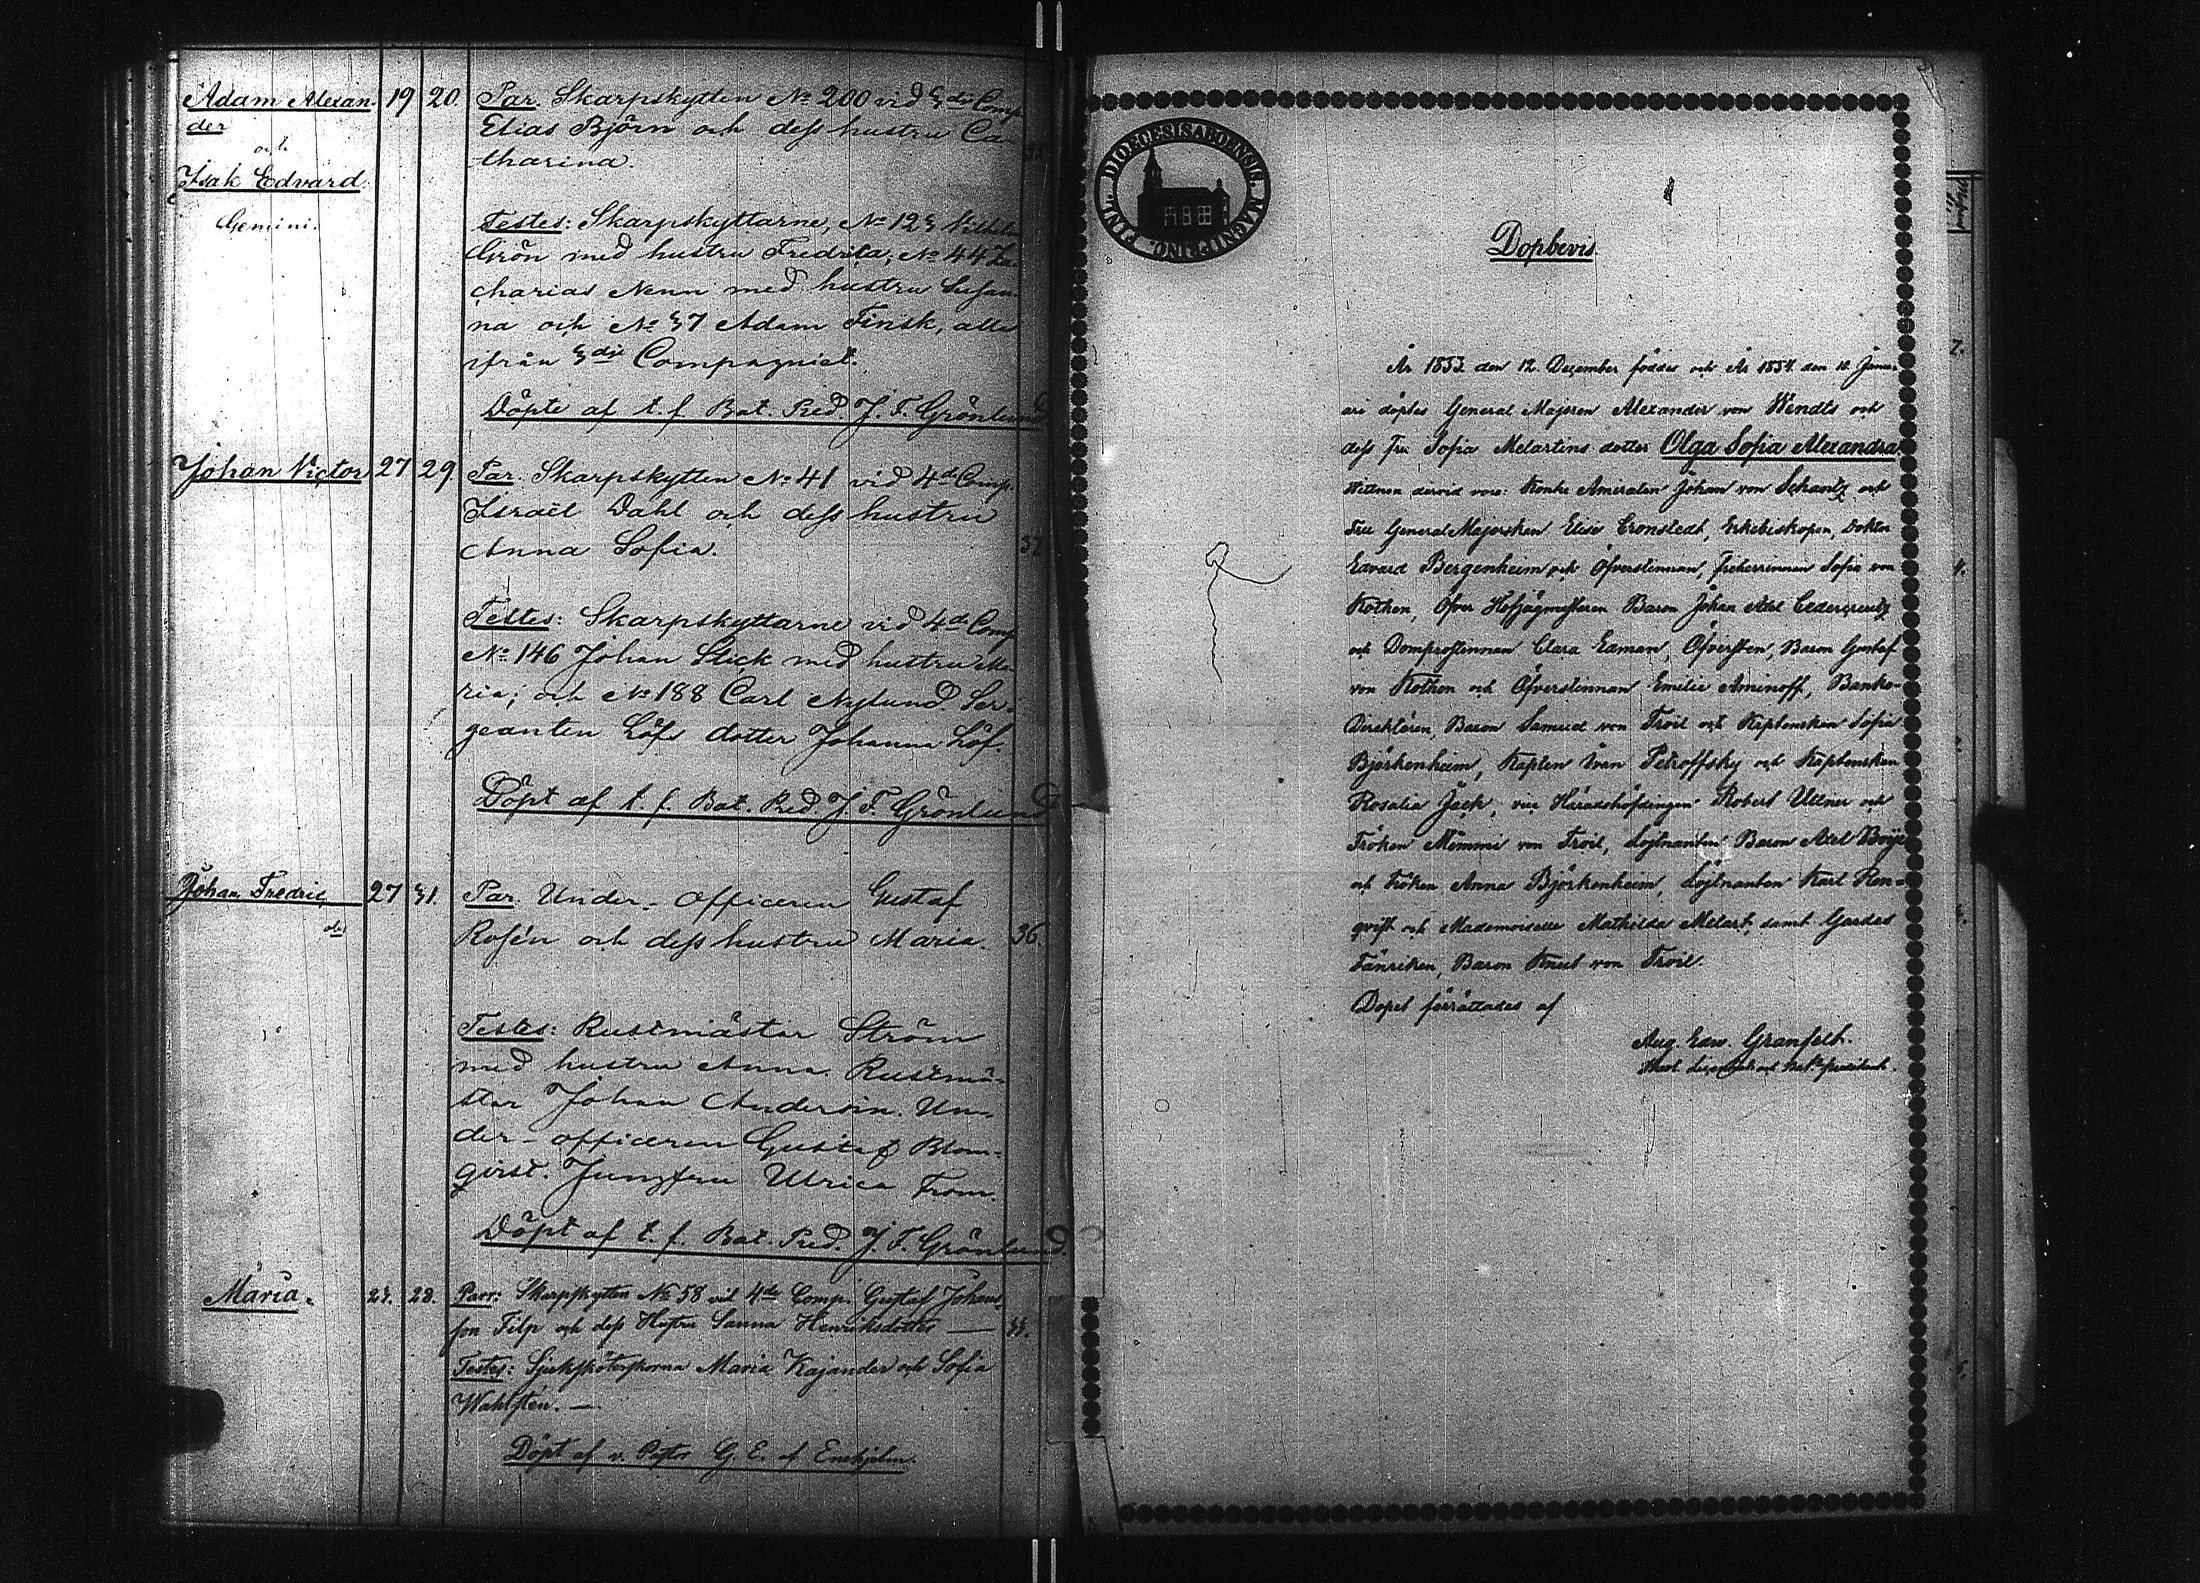 Adam Alexan-
der
och
Isak Edvard.
Gemini.
19 20. Par. Skarpskytten No 200 vid 3dje Comp.
Elias Björn och dess hustru Ca-
tharina.
Testes: Skarpskyttarne, No 123 Vilhelm
Grön med hustru Fredrika, No 44 Za-
charias Nenn med hustru Susan-
na och No 37 Adam Finsk, alla
ifrån 3dje Compagniet.
Döpte af t. f. Bat. Pred. J. F. Grönlund
Johan Victor 27 29. Par. Skarpskytten No 41 vid 4de Comp.
Israël Dahl och dess hustru
Anna Sofia. 37
Testes: Skarpskyttarne vid 4de Comp
No 146 Johan Stick med hustru Ma-
ria; och No 188 Carl Nylund Ser-
geanten Löfs dotter Johanna Löf.
Döpt af t. f. Bat. Pred. J. F. Grönlund
Johan Fredric 27 31. Par. Under-officeren Gustaf
Rosén och dess hustru Maria. 36.
Testes: Rustmästar Ström
med hustru Anna. Rustmä-
star Johan Andersin. Un-
der-officeren Gustaf Blom-
qvist. Jungfru Ulrica From.
Döpt af t. f. Bat. Pred. J. F. Grönlund.
Maria. 23. 23. Parr: Skarpskytten No 58 vid 4de Comp. Gustaf Johans-
son Filp och dess Hustru Sanna Henriksdotter — 33.
Testes: Sjuksköterskorna Maria Kajander och Sofia
Wahlstén. —
Döpt af v. Pastor G. E. af Enehjelm.
DIOECESIS ABOENSIS. MAGNI DUC. FINL.
Dopbevis.
År 1853 den 12 December föddes och År 1854 den 10 Janu-
ari döptes General Majoren Alexander von Wendts och
dess Fru Sofia Melartins dotter Olga Sofia Alexandra.
Vittnen dervid voro: Kontre Amiralen Johan von Schantz och
Fru General Majorskan Elise Cronstedt, Erkebiskopen, Doktor
Edvard Bergenheim och Öfverstinnan, Friherrinnan Sofia von
Kothen, Öfver Hofjägmästeren Baron Johan Axel Cedercreutz
och Domprostinnan Clara Edman, Öfversten, Baron Gustaf
von Kothen och Öfverstinnan Emilie Aminoff, Banko-
Direktören, Baron Samuel von Troil och Kaptenskan Sofia
Björkenheim, Kapten Ivan Petroffsky och Kaptenskan
Rosalia Jack, vice Häradshöfdingen Robert Uttner och
Fröken Mimmi von Troil, Löjtnanten Baron Axel Boije
och Fröken Anna Björkenheim, Löjtnanten Karl Ren-
qvist och Mademoiselle Mathilda Melart, samt Gardes
Fänriken, Baron Knut von Troil.
Dopet förrättades af
Aug. Edw. Granfelt.